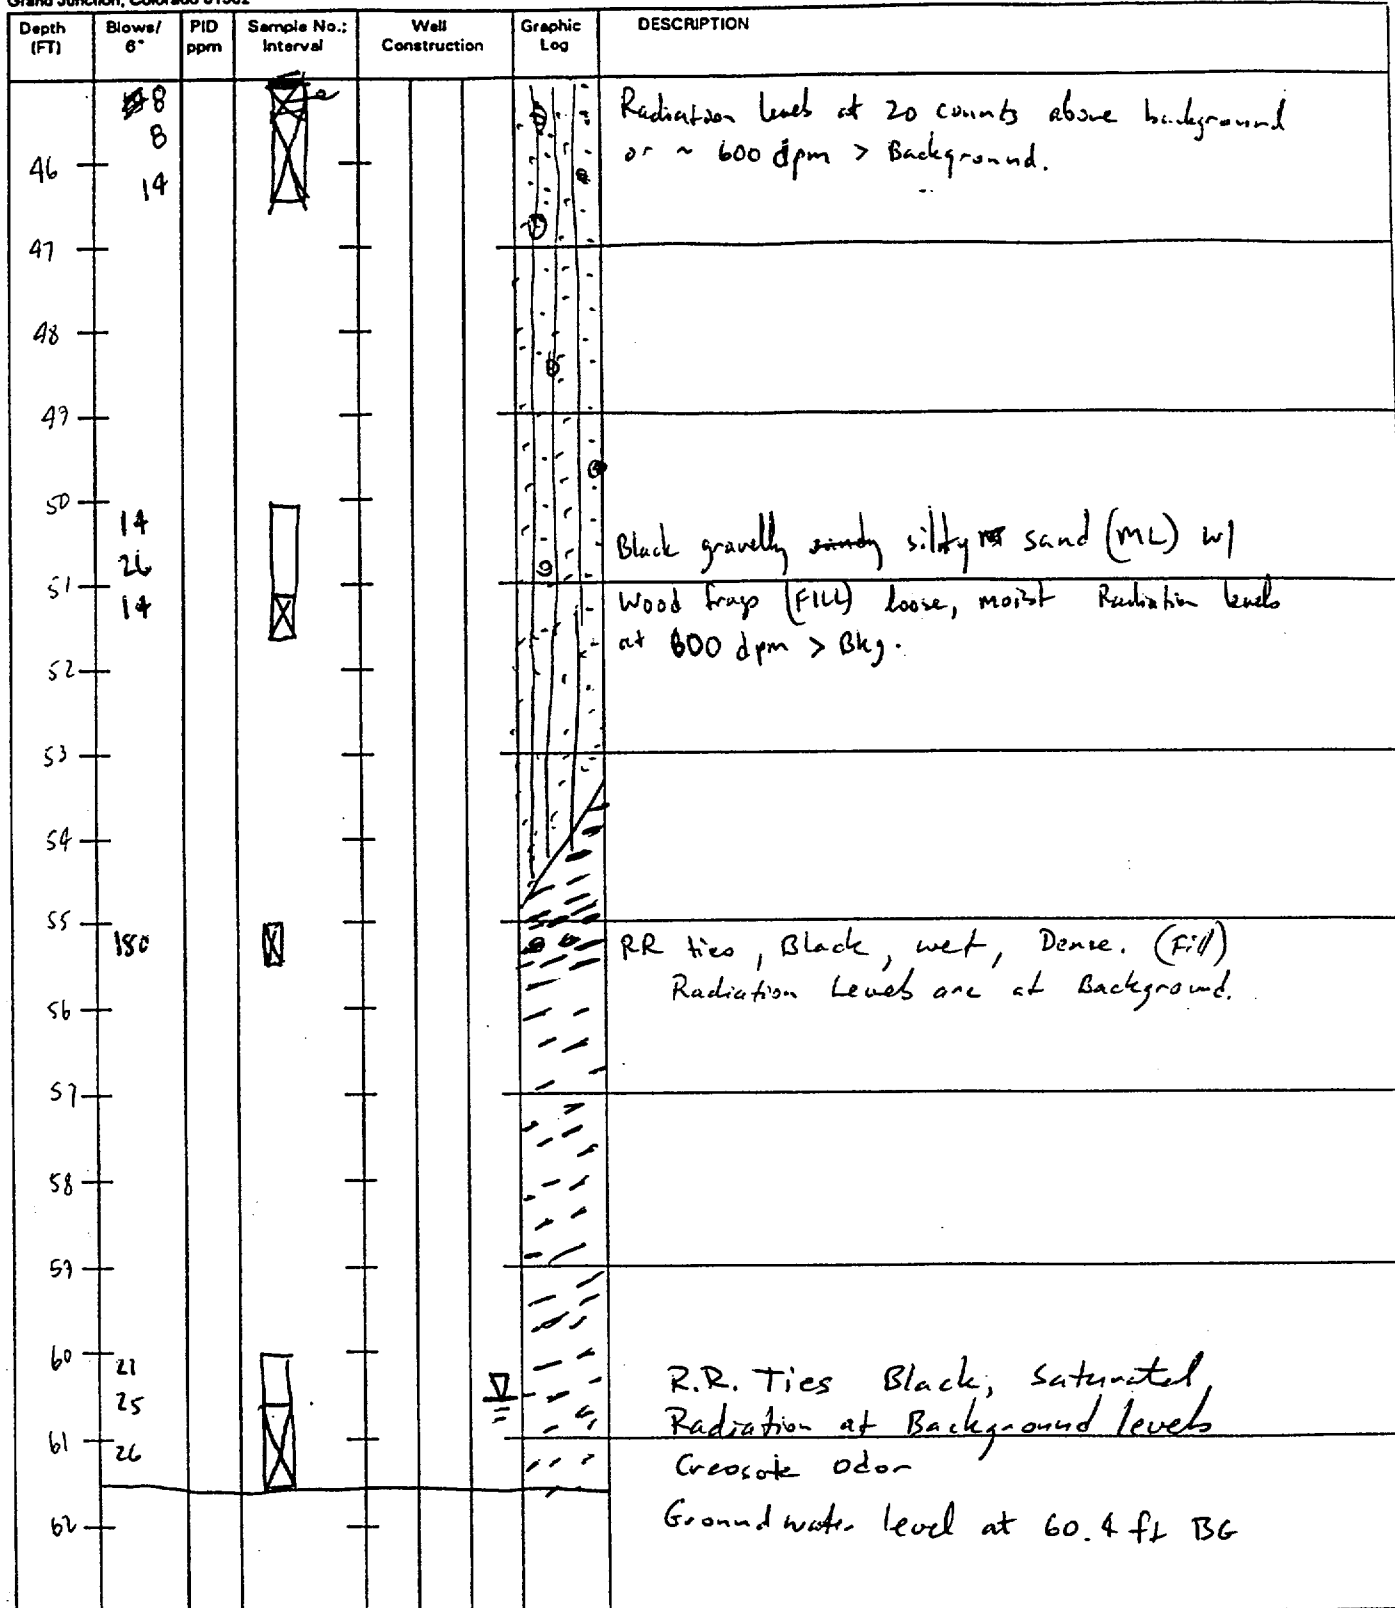 Grand Junction, Colorado 81502
Depth (FT) Blows/ 6" PID ppm Sample No.; Interval Well Construction Graphic Log DESCRIPTION
8
8
14
46
Radiation levels at 20 counts above background
or ~ 600 dpm > Background.
47
48
49
50
14
26
51
14
Black gravelly sandy silty sand (ML) w/
Wood frags (FILL) loose, moist Radiation levels
at 600 dpm > Bkg.
52
53
54
55
180
RR ties, Black, wet, Dense. (Fill)
Radiation Levels are at Background.
56
57
58
59
60
21
25
61
26
R.R. Ties Black, Saturated,
Radiation at Background levels
Creosote odor
Groundwater level at 60.4 ft BG
62